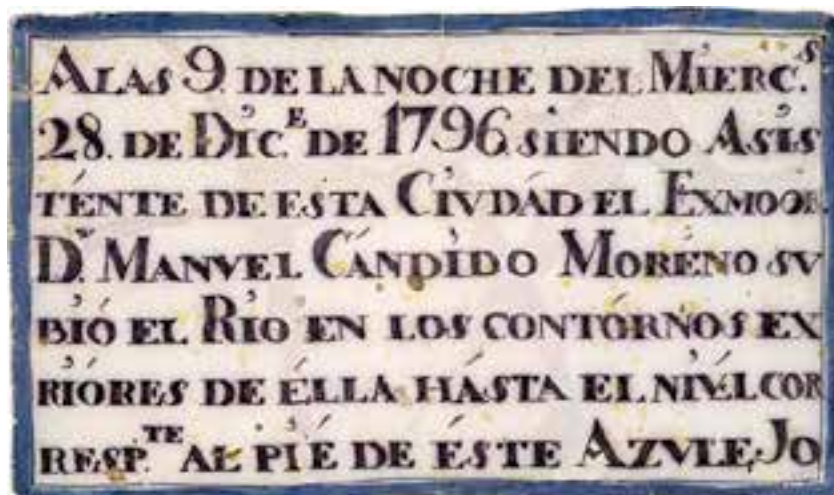 ALAS 9. DE LA NOCHE DEL MIERC.S
28. DE DIC.E DE 1796. SIENDO ASIS
TENTE DE ESTA CIVDÁD EL EXMO
D.N MANVEL CÁNDIDO MORÉNO SV
BIÓ EL RIO EN LOS CONTÓRNOS EX
RIÓRES DE ÉLLA HÁSTA EL NIVÉL COR
RESP.TE AL PIÉ DE ÉSTE AZVLEJO